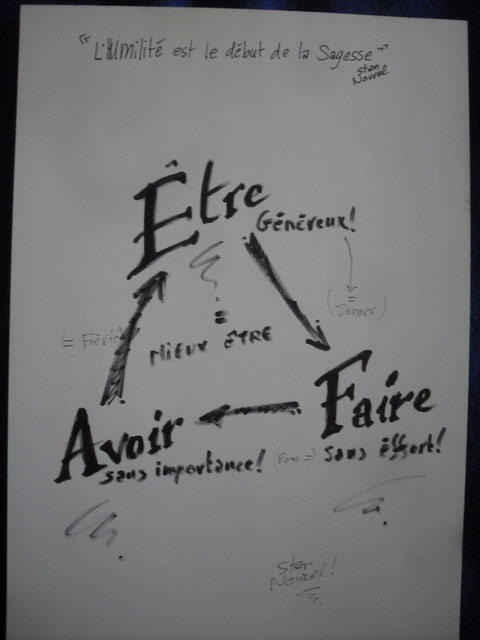 "L'Humilité est le début de la Sagesse"
Stan
Nourel
Être
Généreux!
(=
Donner)
=
MIEUX ÊTRE
(= Fierté)
Avoir
sans importance!
Faire
sans éffort!
Stan
Nourel!